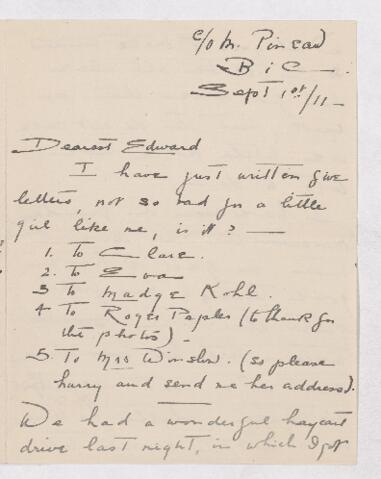 c/o M. Pineau
Bic
Sept 1st/11 -
Dearest Edward
I have just written five
letters, not so bad for a little
girl like me, is it? —
1. To Clare.
2. To Eva
3 To Madge Kohl.
4 To Roger Peples (to thank for
the photos) -
5. To Mrs Winslow. (so please
hurry and send me her address).
We had a wonderful haycart
drive last night, in which I got